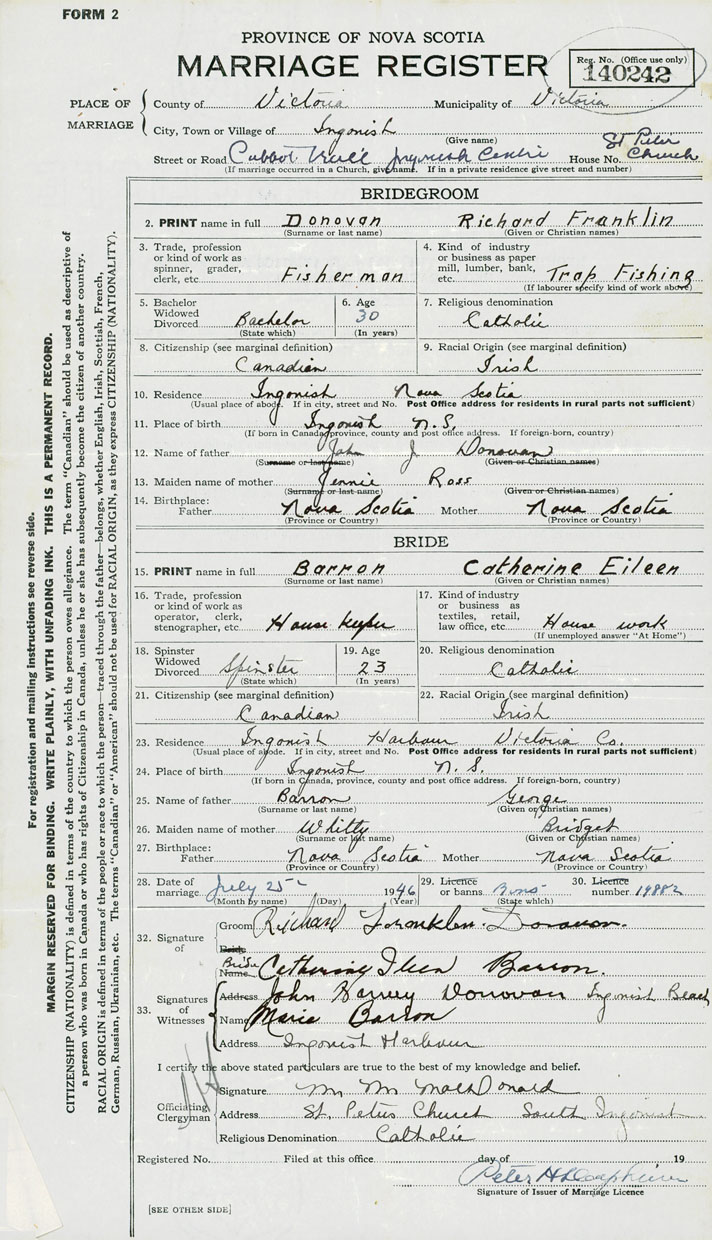 FORM 2
PROVINCE OF NOVA SCOTIA
MARRIAGE REGISTER
Reg. No. (Office use only)
140242
PLACE OF MARRIAGE
County of Victoria Municipality of Victoria
City, Town or Village of Ingonish
(Give name)
Street or Road Cabbot Trail Ingonish Centre House No. St Peter Church
(If marriage occurred in a Church, give name. If in a private residence give street and number)
BRIDEGROOM
2. PRINT name in full Donovan Richard Franklin
(Surname or last name) (Given or Christian names)
3. Trade, profession or kind of work as spinner, grader, clerk, etc. Fisherman
4. Kind of industry or business as paper mill, lumber, bank, etc. Trap Fishing
(If labourer specify kind of work above)
5. Bachelor Widowed Divorced Bachelor
(State which)
6. Age 30
(In years)
7. Religious denomination
Catholic
8. Citizenship (see marginal definition)
Canadian
9. Racial Origin (see marginal definition)
Irish
10. Residence Ingonish Nova Scotia
(Usual place of abode. If in city, street and No. Post Office address for residents in rural parts not sufficient)
11. Place of birth Ingonish N.S.
(If born in Canada, province, county and post office address. If foreign-born, country)
12. Name of father John J Donovan
(Surname or last name) (Given or Christian names)
13. Maiden name of mother Jennie Ross
(Surname or last name) (Given or Christian names)
14. Birthplace: Father Nova Scotia Mother Nova Scotia
(Province or Country) (Province or Country)
BRIDE
15. PRINT name in full Barron Catherine Eileen
(Surname or last name) (Given or Christian names)
16. Trade, profession or kind of work as operator, clerk, stenographer, etc. House keeper
17. Kind of industry or business as textiles, retail, law office, etc. House work
(If unemployed answer "At Home")
18. Spinster Widowed Divorced Spinster
(State which)
19. Age 23
(In years)
20. Religious denomination
Catholic
21. Citizenship (see marginal definition)
Canadian
22. Racial Origin (see marginal definition)
Irish
23. Residence Ingonish Harbour Victoria Co.
(Usual place of abode. If in city, street and No. Post Office address for residents in rural parts not sufficient)
24. Place of birth Ingonish N.S.
(If born in Canada, province, county and post office address. If foreign-born, country)
25. Name of father Barron George
(Surname or last name) (Given or Christian names)
26. Maiden name of mother Whitty Bridget
(Surname or last name) (Given or Christian names)
27. Birthplace: Father Nova Scotia Mother Nova Scotia
(Province or Country) (Province or Country)
28. Date of marriage July 25 1946
(Month by name) (Day) (Year)
29. Licence or banns
(State which)
30. Licence number 19882
32. Signature of
Groom Richard Franklin Donovan.
Bride
Bride Name Catherine Ileen Barron.
33. Signatures of Witnesses
Address John Harvey Donovan Ingonish Beach
Name Marie Barron
Address Ingonish Harbour
I certify the above stated particulars are true to the best of my knowledge and belief.
Officiating Clergyman
Signature M. M. MacDonald
Address St. Peters Church South Ingonish
Religious Denomination Catholic
Registered No. Filed at this office day of 19
Signature of Issuer of Marriage Licence
[SEE OTHER SIDE]
For registration and mailing instructions see reverse side.
MARGIN RESERVED FOR BINDING. WRITE PLAINLY, WITH UNFADING INK. THIS IS A PERMANENT RECORD.
CITIZENSHIP (NATIONALITY) is defined in terms of the country to which the person owes allegiance. The term "Canadian" should be used as descriptive of
a person who was born in Canada or who has rights of Citizenship in Canada, unless he or she has subsequently become the citizen of another country.
RACIAL ORIGIN is defined in terms of the people or race to which the person—traced through the father—belongs, whether English, Irish, Scottish, French,
German, Russian, Ukrainian, etc. The terms "Canadian" or "American" should not be used for RACIAL ORIGIN, as they express CITIZENSHIP (NATIONALITY).